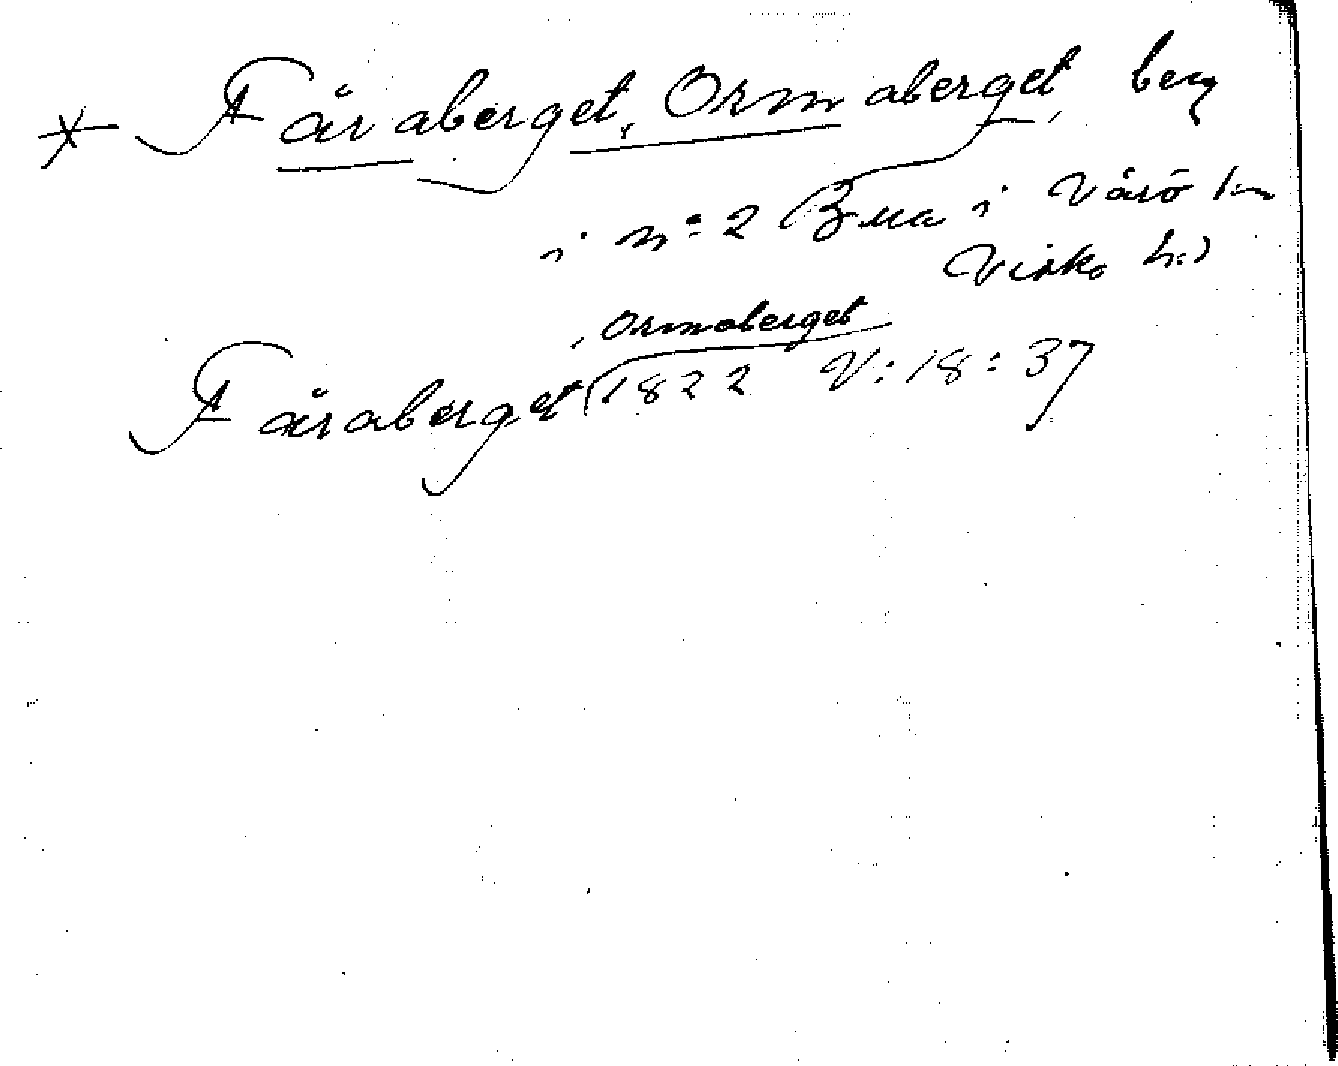 * Fåraberget, Ormaberget, berg
i n:o 2 Bua i Värö sn
Viske hd
, Ormaberget
Fåraberget 1822 V:18:37